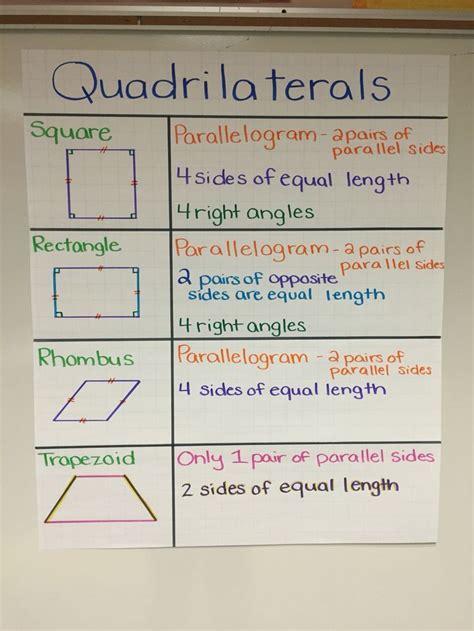 Quadrilaterals
Square
Parallelogram - 2 pairs of
parallel sides
4 sides of equal length
4 right angles
Rectangle
Parallelogram - 2 pairs of
parallel sides
2 pairs of opposite
sides are equal length
4 right angles
Rhombus
Parallelogram - 2 pairs of
parallel sides
4 sides of equal length
Trapezoid
Only 1 pair of parallel sides
2 sides of equal length